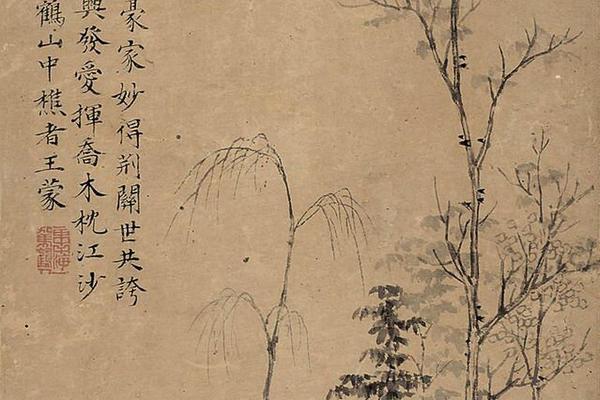 家妙得荊關世共誇
興發愛揮喬木枕江沙
鶴山中樵者王蒙